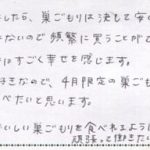 したら、巣ごもりは決して安く
ないので頻繁に買うことがで
はすごく幸せを感じます。
好きなので、4月限定の巣ごも
べたいと思います。
いしい巣ごもりを食べれるように
頑張って働きたい